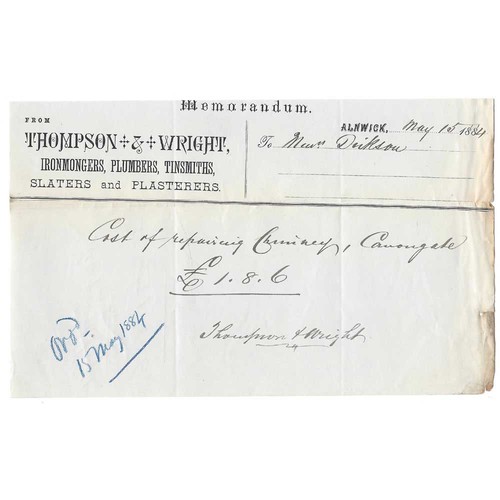 Memorandum.
FROM
THOMPSON & WRIGHT,
IRONMONGERS, PLUMBERS, TINSMITHS,
SLATERS and PLASTERERS.
ALNWICK, May 15 1884
To Messrs Dickson
Cost of repairing Chimney, Canongate
£1.8.6
Thompson & Wright
15 May 1884